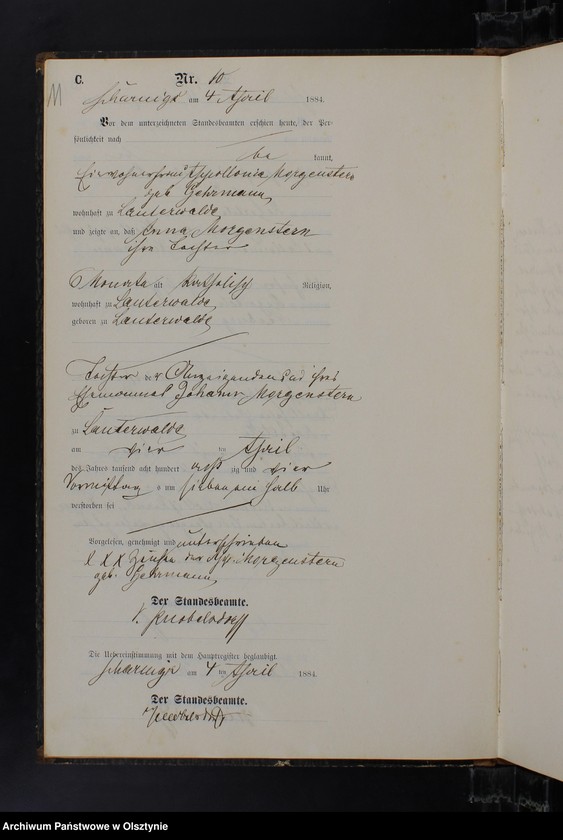 C. Nr. 10
11
am 4 April 1884.
Vor dem unterzeichneten Standesbeamten erschien heute, der Per-
sönlichkeit nach
be kannt,
Appollonia Morgenstern
geb. Gehrmann,
wohnhaft zu Lauterwalde,
und zeigte an, daß Anna Morgenstern
ihre Tochter
Monate alt katholisch Religion,
wohnhaft zu Lauterwalde,
geboren zu Lauterwalde
Tochter der Anzeigenden und ihres
Ehemannes Johann Morgenstern
zu Lauterwalde
am vier ten April
des Jahres tausend acht hundert acht zig und vier
Vormittag s um sieben ein halb Uhr
verstorben sei
Vorgelesen, genehmigt und unterschrieben
X X X der App. Morgenstern
geb. Gehrmann,
Der Standesbeamte.
v. Knobelsdorff
Die Uebereinstimmung mit dem Hauptregister beglaubigt.
am 4 ten April 1884.
Der Standesbeamte.
v. Knobelsdorff
Archiwum Państwowe w Olsztynie